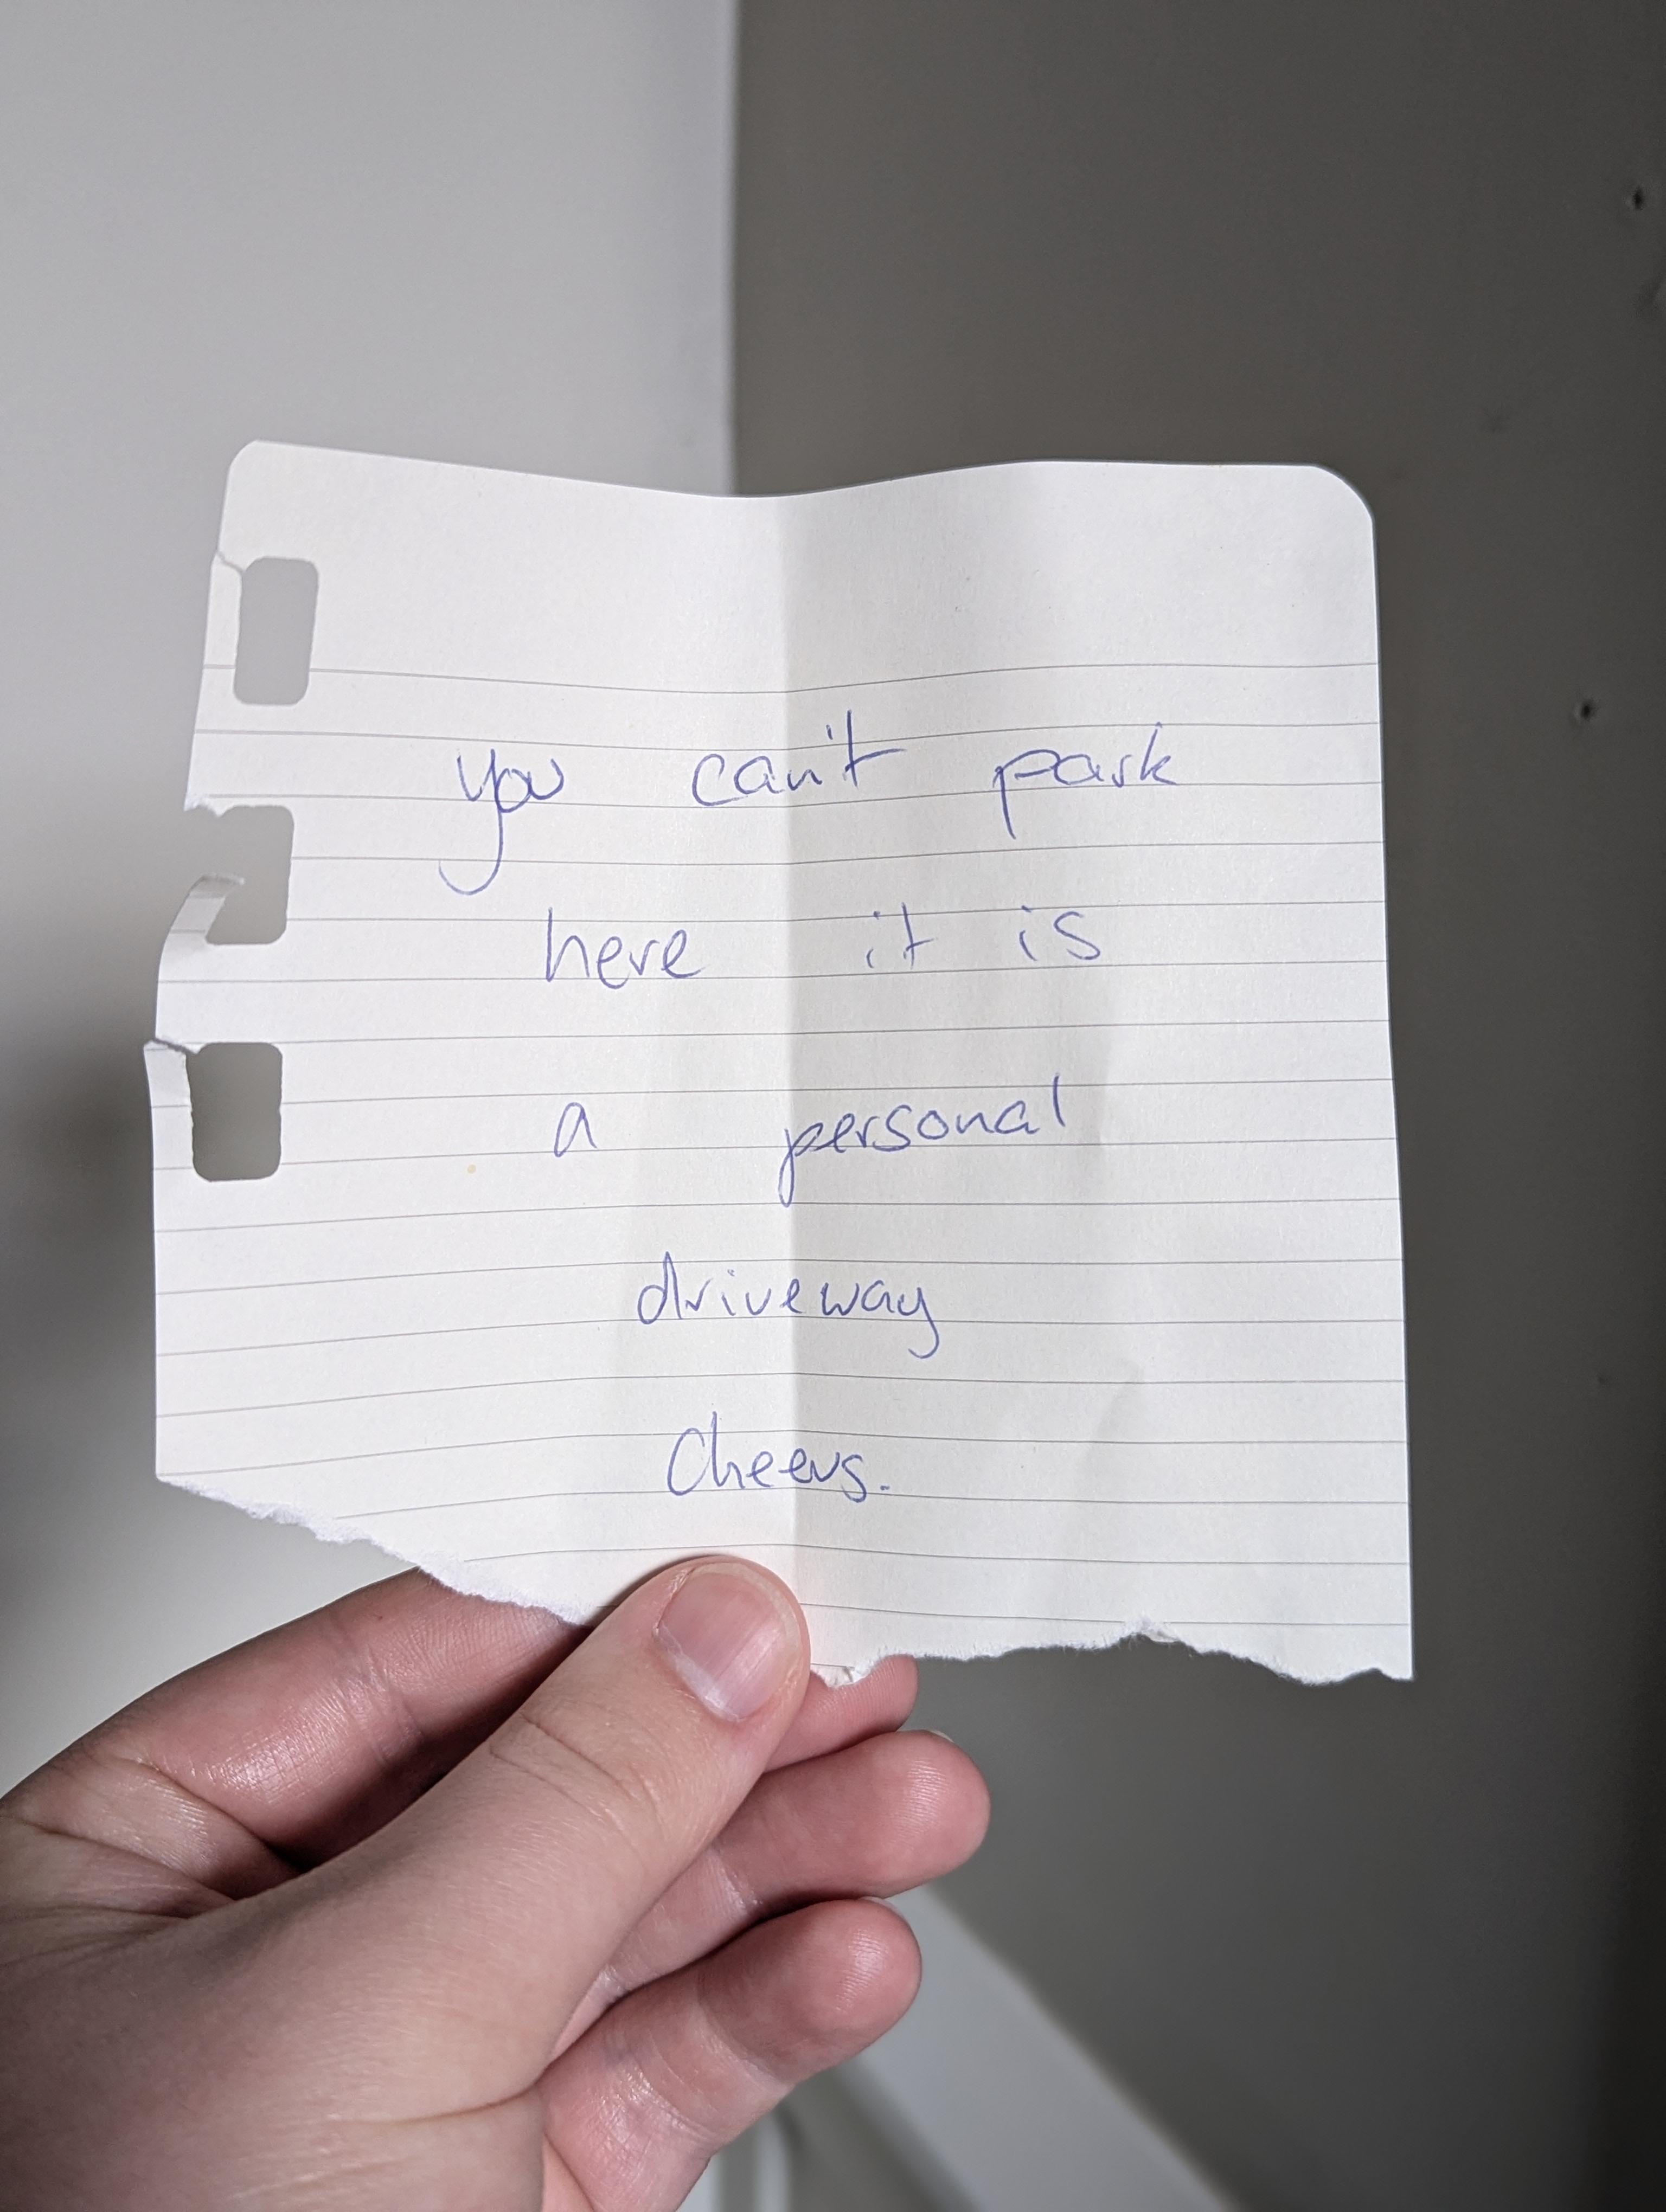 you can't park
here it is
a personal
driveway
Cheers.